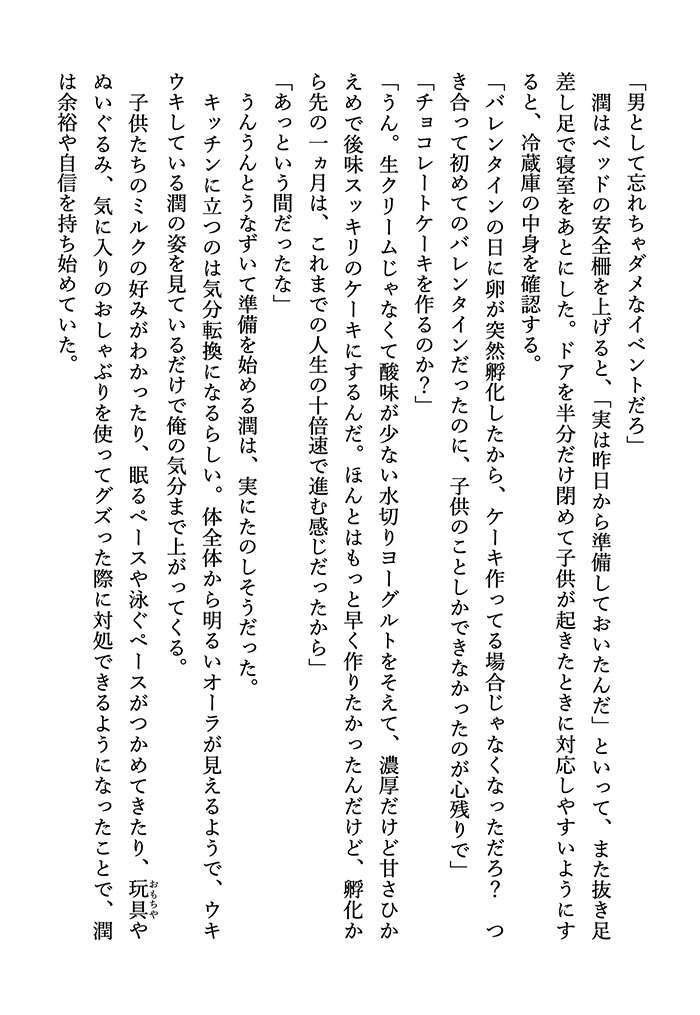 「男として忘れちゃダメなイベントだろ」
　潤はベッドの安全柵を上げると、「実は昨日から準備しておいたんだ」といって、また抜き足
差し足で寝室をあとにした。ドアを半分だけ閉めて子供が起きたときに対応しやすいようにす
ると、冷蔵庫の中身を確認する。
「バレンタインの日に卵が突然孵化したから、ケーキ作ってる場合じゃなくなっただろ？　つ
き合って初めてのバレンタインだったのに、子供のことしかできなかったのが心残りで」
「チョコレートケーキを作るのか？」
「うん。生クリームじゃなくて酸味が少ない水切りヨーグルトをそえて、濃厚だけど甘さひか
えめで後味スッキリのケーキにするんだ。ほんとはもっと早く作りたかったんだけど、孵化か
ら先の一ヵ月は、これまでの人生の十倍速で進む感じだったから」
「あっという間だったな」
　うんうんとうなずいて準備を始める潤は、実にたのしそうだった。
　キッチンに立つのは気分転換になるらしい。体全体から明るいオーラが見えるようで、ウキ
ウキしている潤の姿を見ているだけで俺の気分まで上がってくる。
　子供たちのミルクの好みがわかったり、眠るペースや泳ぐペースがつかめてきたり、玩具や
おもちゃ
ぬいぐるみ、気に入りのおしゃぶりを使ってグズった際に対処できるようになったことで、潤
は余裕や自信を持ち始めていた。